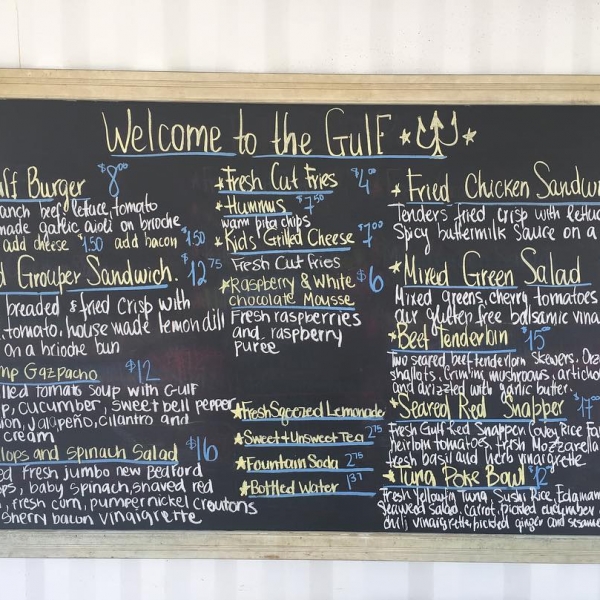 Welcome to the Gulf
lf Burger $8.00
anch beef, lettuce, tomato
made garlic aioli on brioche
add cheese $1.50 add bacon $1.50
d Grouper Sandwich. $12.75
breaded & fried crisp with
, tomato, house made lemon dill
on a brioche bun
mp Gazpacho $12
lled tomato soup with Gulf
p, cucumber, sweet bell pepper,
lon, jalapeño, cilantro and
cream
llops and Spinach Salad $16
ed fresh jumbo new Bedford
ops, baby spinach, shaved red
, fresh corn, pumpernickel croutons
sherry bacon vinaigrette
Fresh Cut Fries $4.00
Hummus $7.50
warm pita chips
Kids Grilled Cheese $7.00
Fresh Cut Fries
Raspberry & White $6
Chocolate Mousse
Fresh raspberries
and raspberry
puree
Fresh Sqeezed Lemonade
Sweet + UnSweet Tea 2.75
Fountain Soda 2.75
Bottled Water 1.37
Fried Chicken Sandwi
Tenders fried crisp with lettuc
Spicy buttermilk Sauce on a
Mixed Green Salad
Mixed greens, cherry tomatoes
our gluten free balsamic vina
Beef Tenderloin $15
Two seared beef tenderloin skewers. Orz
shallots, Crimini mushrooms, artichok
and drizzled with garlic butter.
Seared Red Snapper $17
Fresh Gulf Red Snapper Covey Rice Fa
heirloom tomatoes, fresh Mozzarella
fresh basil and herb vinaigrette
Tuna Poke Bowl $12
Fresh Yellowfin Tuna, Sushi Rice, Edamam
Seaweed salad, carrot, pickled cucumber
chili vinaigrette, pickled ginger and sesame